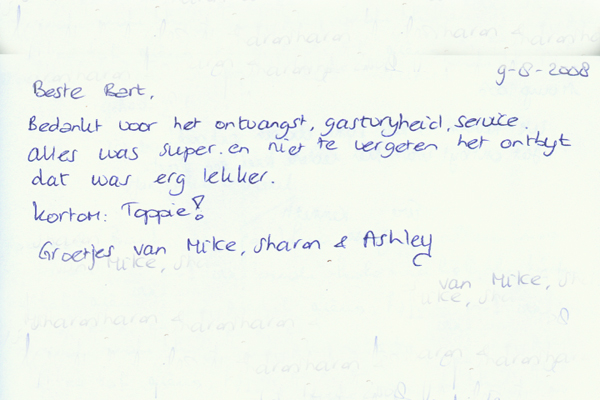 9-8-2008
Beste Bert,
Bedankt voor het ontvangst, gastvryheid, service.
alles was super. en niet te vergeten het ontbyt
dat was erg lekker.
kortom: Toppie!
Groetjes van Mike, Sharon & Ashley
van Mike,